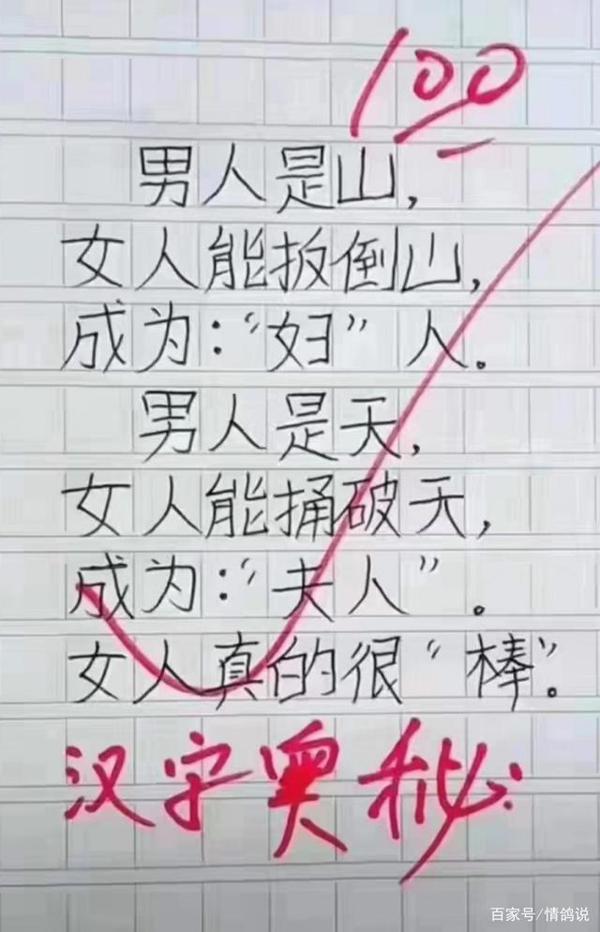 100
男人是山,
女人能扳倒山,
成为:“妇”人。
男人是天,
女人能捅破天,
成为:“夫人”。
女人真的很“棒”。
汉字奥秘
百家号/情鸽说